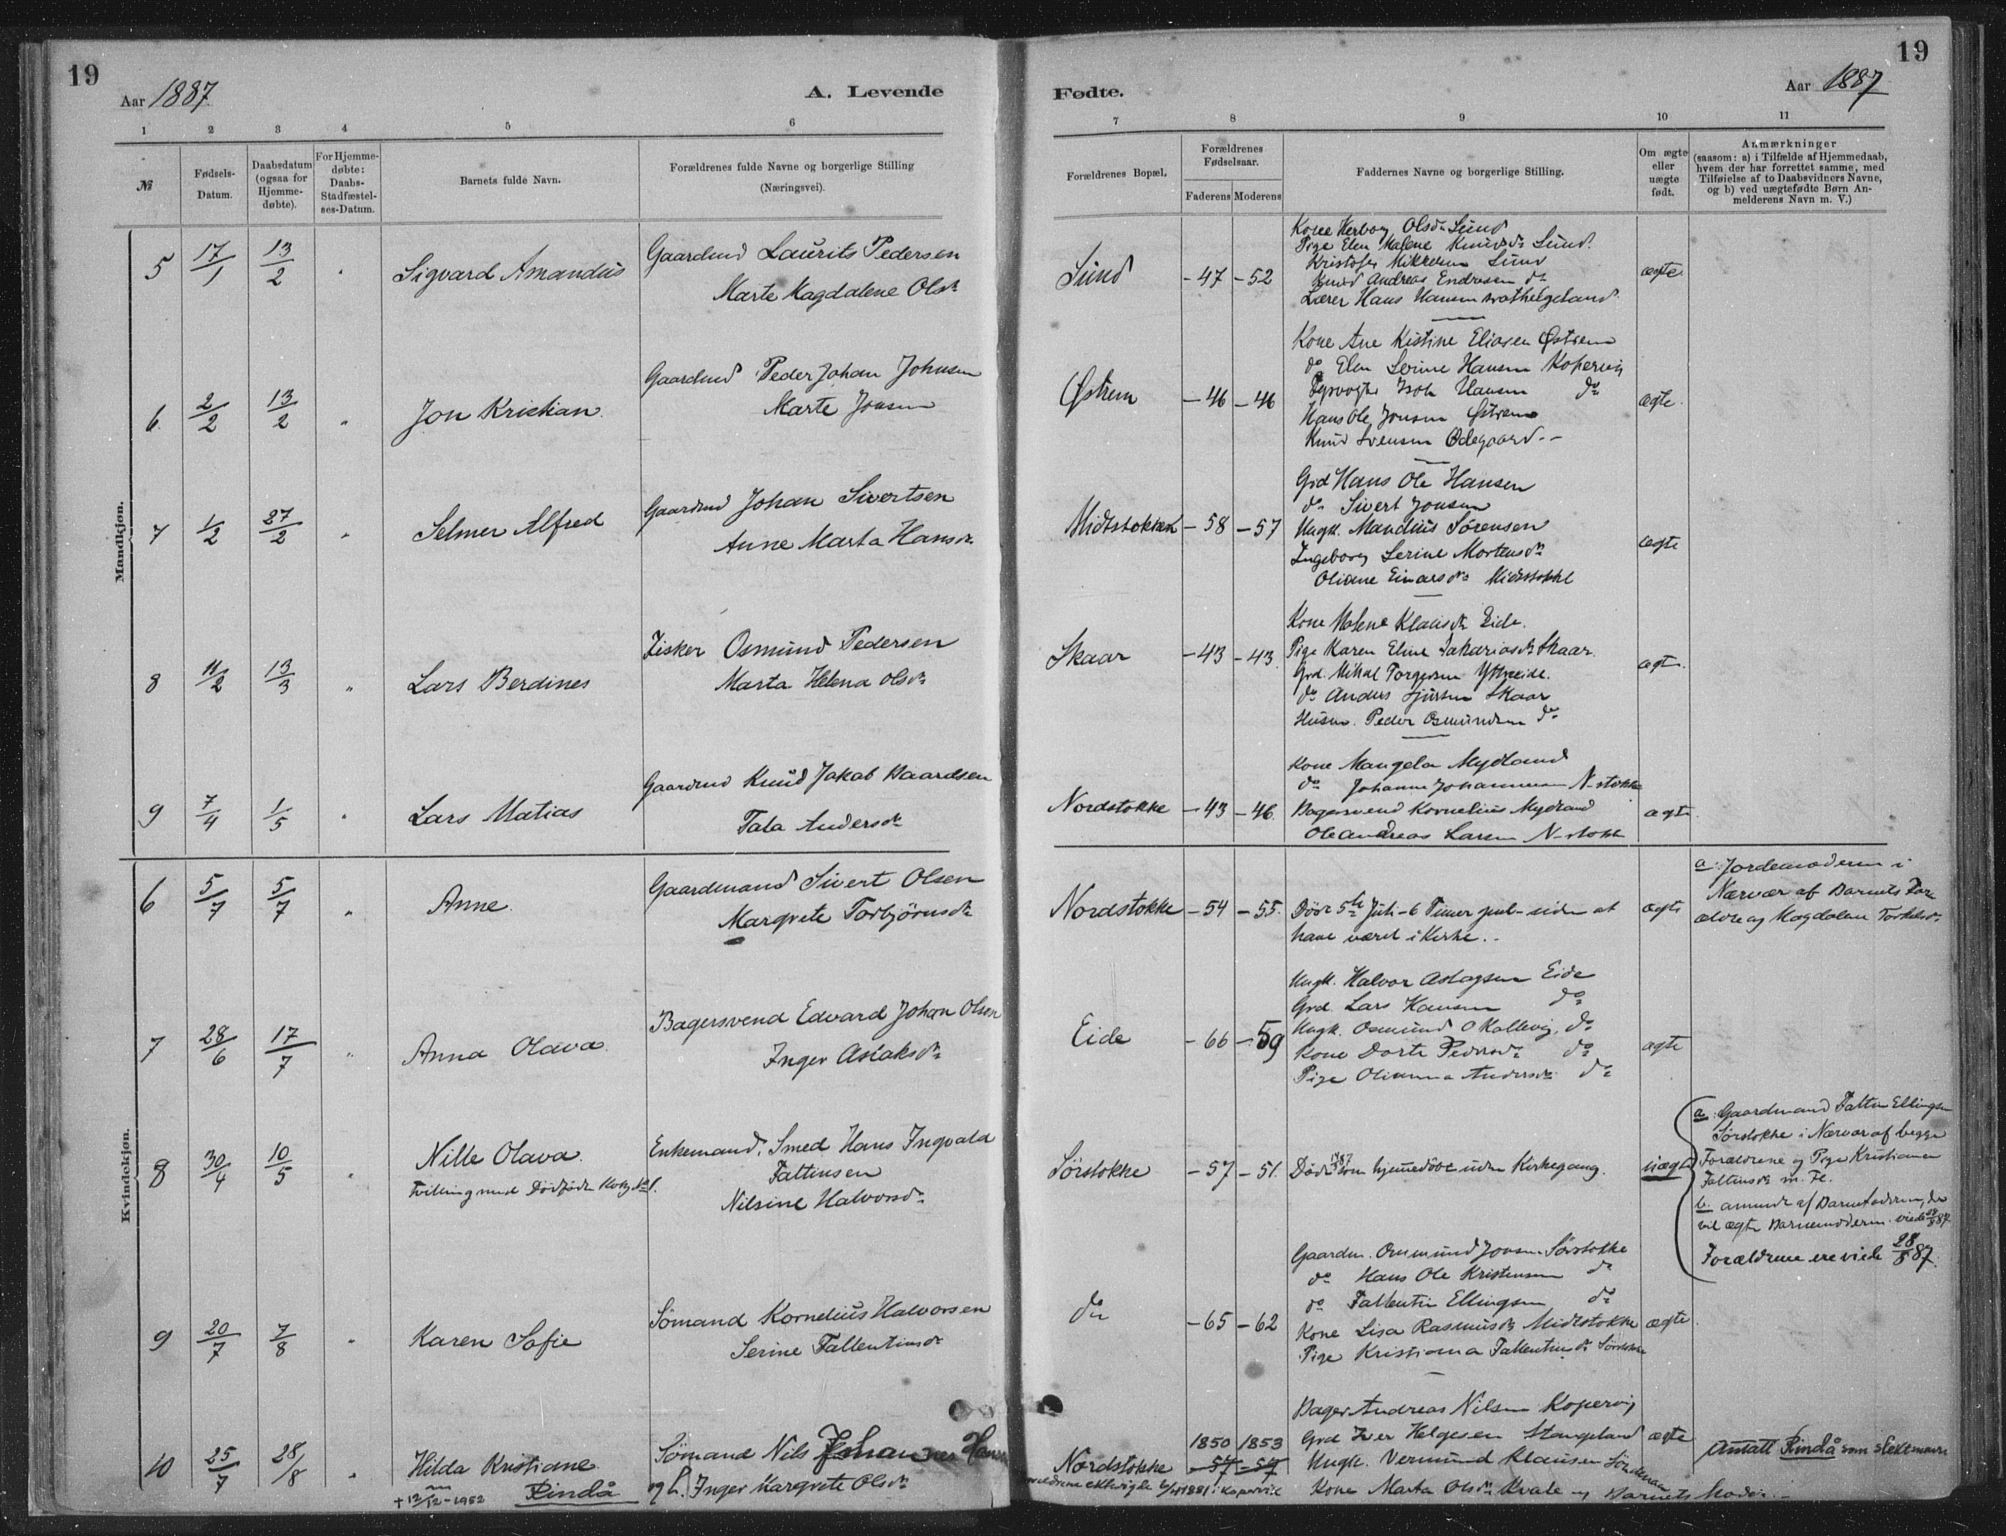 19
Aar 1887.
A. Levende
1 2 3 4 5 6
№
Fødsels-
Datum.
Daabsdatum
(ogsaa for
Hjemme-
døbte).
For Hjemme-
døbte:
Daabs-
Stadfæstel-
ses-Datum.
Barnets fulde Navn.
Forældrenes fulde Navne og borgerlige Stilling
(Næringsvei).
Mandkjøn.
5 17/1 13/2 " Sigvard Amandus
Gaardmd Laurits Pedersen
Marte Magdalene Olsdr
6 2/2 13/2 " Jon Kristian.
Gaardmd Peder Johan Johnsen
Marte Jonsen
7 1/2 27/2 " Selmer Alfred
Gaardmd Johan Sivertsen
Anne Marta Hansdr
8 11/2 13/3 " Lars Berdines
Fisker Osmund Pedersen
Marta Helena Olsdr
9 7/4 1/5 " Lars Matias
Gaardmd Knud Jakob Baardsen
Tala Andersdr
Kvindekjøn.
6 5/7 5/7 " Anne.
Gaardmand Sivert Olsen
Margrete Torbjørnsdr
7 28/6 17/7 " Anna Olava
Bagersvend Edvard Johan Olsen
Inger Aslaksdr
8 30/4 10/5 " Nille Olava.
Tvilling med Dødfødte
Enkemand, Smed Hans Ingvald
Faltinsen
Nilsine Halvorsdr
9 20/7 7/8 " Karen Sofie
Sømand Kornelius Halvorsen
Serine Fallentinsdr
10 25/7 28/8 " Hilda Kristiane
+ 12/12-1952 Rindå
Sømand Nils Johannes Hansen
og h. Inger Margrete Olsdr
19
Fødte.
Aar 1887
7 8 9 10 11
Forældrenes Bopæl.
Forældrenes
Fødselsaar.
Faderens Moderens
Faddernes Navne og borgerlige Stilling.
Om ægte
eller
uægte
født.
Anmærkninger
(saasom: a) i Tilfælde af Hjemmedaab,
hvem der har forrettet samme, med
Tilføielse af to Daabsvidners Navne,
og b) ved uægtefødte Børn An-
melderens Navn m. V.)
Sund - 47 - 52 ægte
Kone Herborg Olsdr Sund
Pige Elen Malene Knudsdr Sund.
Kristofer Mikkelsen Sund
Knud Andreas Endresen do
Lærer Hans Hansen
Østrem - 46 - 46 ægte.
Kone Ane Kistine Eliasen Østrem
do Elen Serine Hansen Kopervig
Fyrvogter Hansen do
Hans Ole Jonsen Østrem
Knud Svensen Ødegaard.-
Midtstokke - 58 - 57 ægte
Grd Hans Ole Hansen
do Sivert Jonsen
Ungk. Mandius Sørensen
Ingeborg Serine Mortensdr
Oliane Einarsdr Midtstokke
Skaar - 43 - 43. ægt.
Kone Malene Klausdr Eide.
Pige Karen Eline Sakariasdr Skaar.
Grd. Mikal Torgersen Ytreeide.
do Anders Sjursen Skaar
Husm. Peder Osmundsen do
Nordstokke - 43 - 46. ægte
Kone Mangela Mydland
do Johanne Johannesen N-stokke
Bagersvend Kornelius Mydland
Ole Andreas Larsen N-stokke
Nordstokke - 54 - 55. ægte
Død 5te Juli - 6 Timer gml - uden at
have været i Kirke.-
a. Jordemoderen i
Nærvær af Barnets For
ældre og Magdalene Torkelsdr
Eide - 66 - 59 ægte
Ungk. Halvor Aslagsen Eide
Grd. Lars Hansen do
Ungk. Osmund O Kallevig. do
Kone Dorte Pedersdr do
Pige Olianna Andersdr do
Sørstokke - 57 - 51. uægte
Død som hjemmedøbt uden Kirkegang.
a. Gaardmand Faltin Ellingsen
Sørstokke i Nærvær af begge
Forældrene og Pige Kristianna
Faltinsdr m. Fl.
b. anmeldt af Barnefaderen, der
vil ægte Barnemoderen.
Forældrene ere viede 28/8 87.
do - 65 - 62 ægte
Gaardm. Ommund Jonsen Sørstokke
do Hans Ole Kristensen do
do Fallentin Ellingsen do
Kone Lisa Rasmusdr Midtstokke
Pige Kristianna Fallentinsdr Sørstokke
Nordstokke 1850 1853 ægte
- 57 - 57
Bager Andreas Nilsen Kopervig
Grd Iver Helgesen Stangeland
Ungk. Vermund Klausen
Kone Marta Olsdr Kvale og Barnets Moder.-
Antatt Rindå som slektsnavn